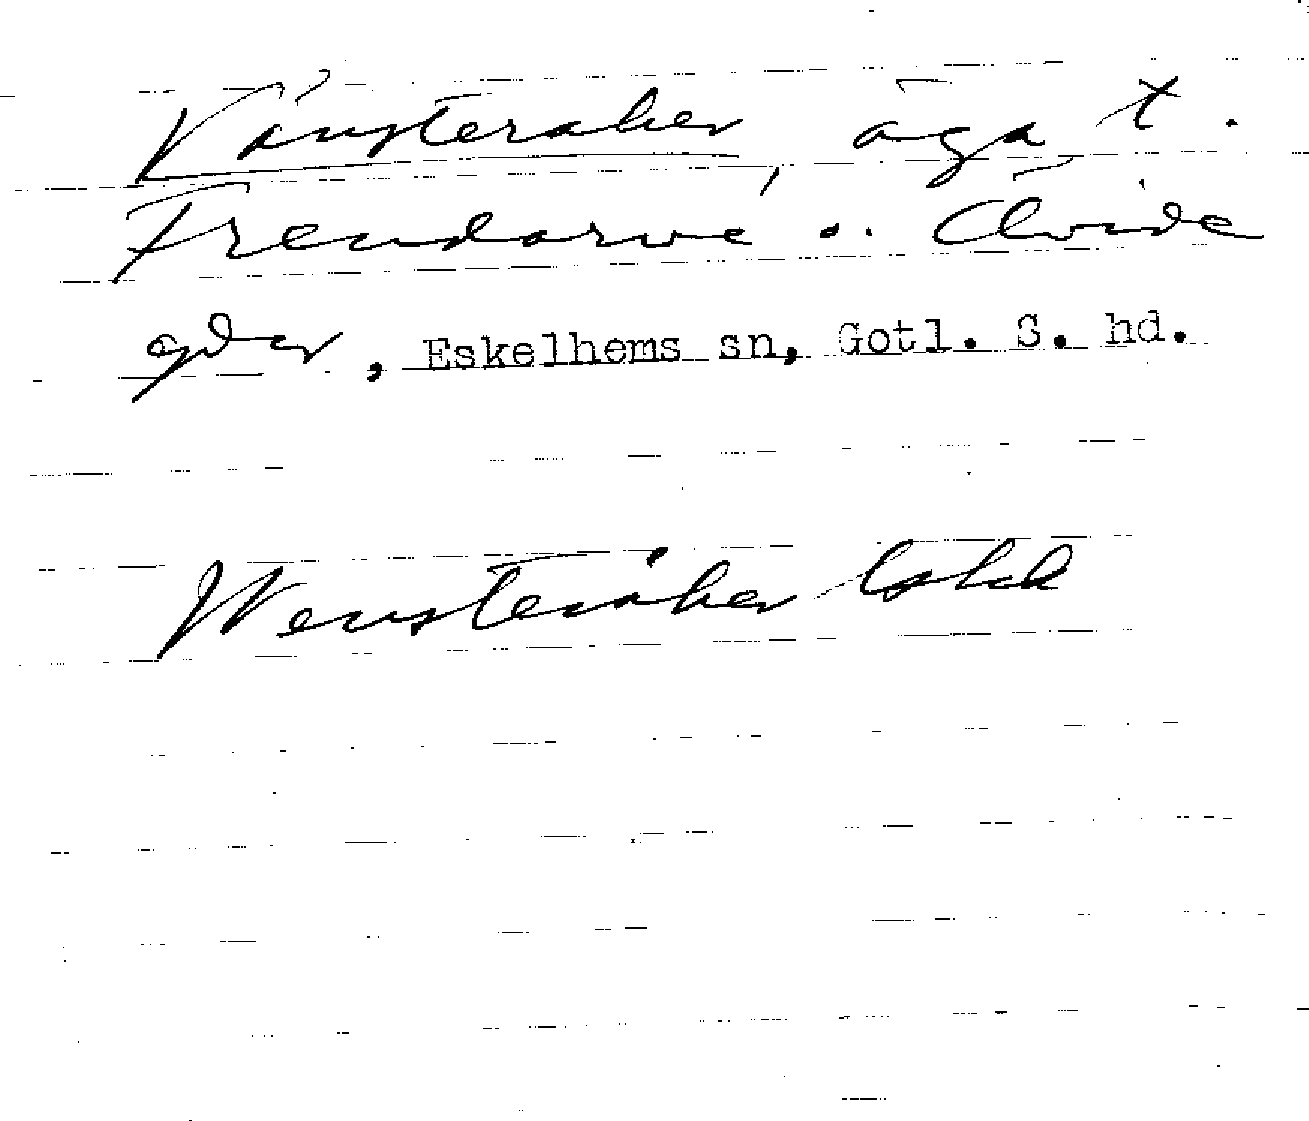 Vänsteråker, äga t.
Frendarve o. Övide
gdar, Eskelhems sn, Gotl. S. hd.
Wensteråker